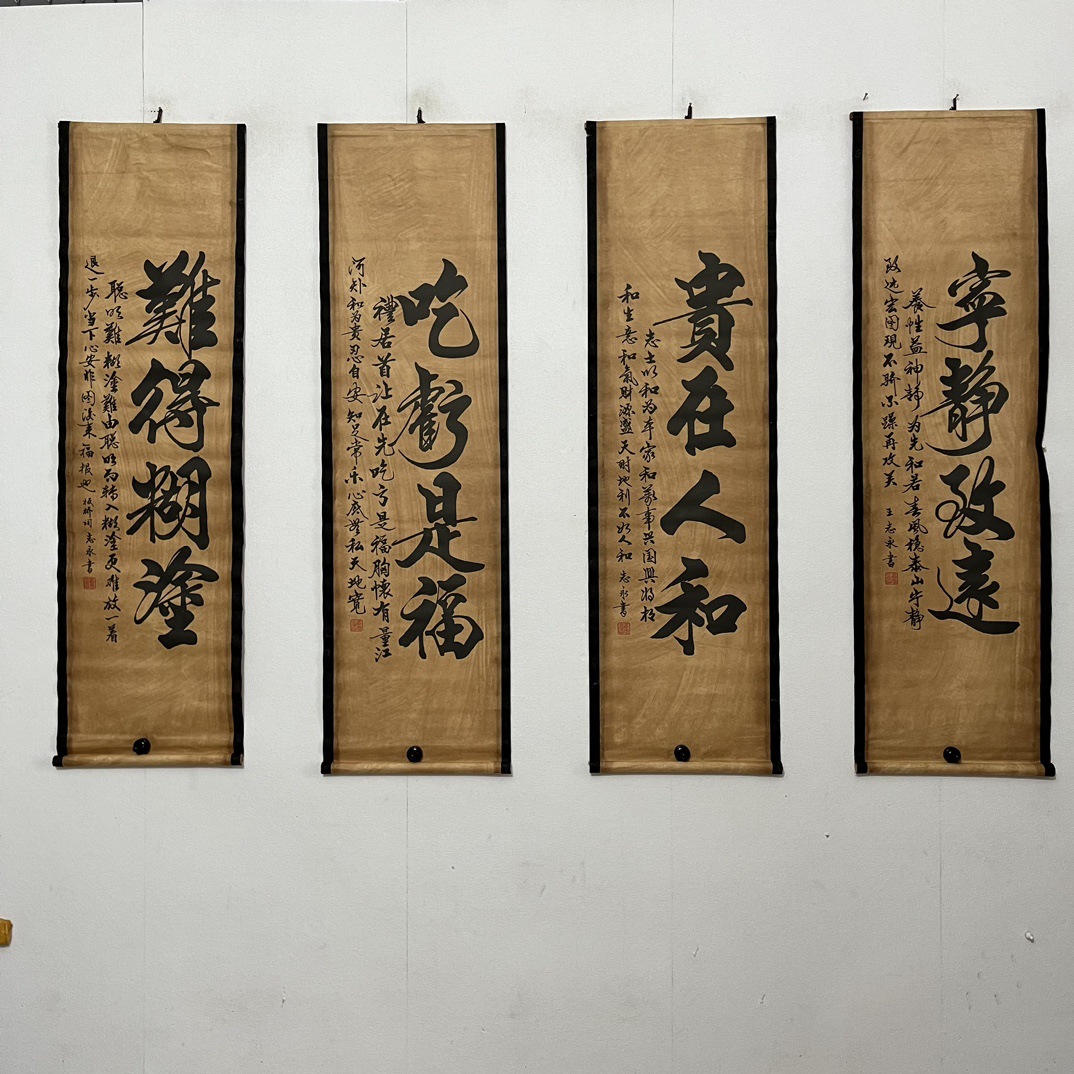 寧靜致遠
養性益神静为先和若春風穩泰山宁静
致远宏图現不骄不躁再攻关 王志永書
貴在人和
志士以和为本家和萬事兴国興将相
和生意和氣財源盛天时地利不如人和 志永書
吃虧是福
禮居首让在先吃亏是福胸懷有量江
河外和为貴忍自安知足常乐心底無私天地寬
難得糊塗
聪明難糊塗難由聪明而转入糊塗更难放一着
退一步当下心安非图後来福报也 板桥词 志永書